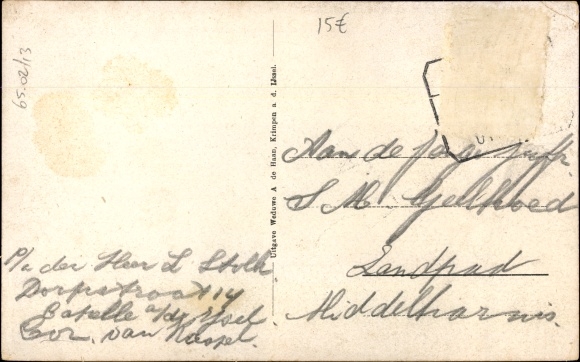 15€
65.02/13
Uitgave Weduwe A de Haan, Krimpen a. d. IJssel.
Aan de
J. M. Geelhoed
Zandpad
Middelharnis.
P/a der Heer L Stolk
Dorpstraat 14
Catelle a/de IJsel
van